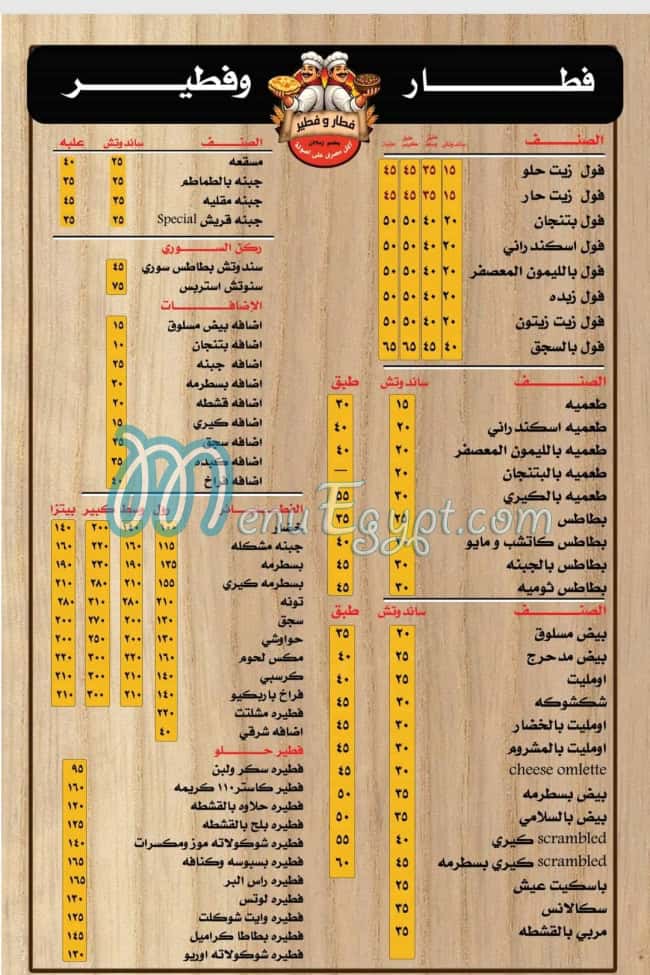 فطار وفطير
فطار و فطير
أكل مصري على أصولة
الصنف ساندوتش علبه
فول زيت حلو ١٥ ٣٥ ٤٥ ٤٥
فول زيت حار ١٥ ٣٥ ٤٥ ٤٥
فول بتنجان ٢٠ ٤٠ ٥٠ ٥٠
فول اسكندراني ٢٠ ٤٠ ٥٠ ٥٠
فول بالليمون المعصفر ٢٠ ٤٠ ٥٠ ٥٠
فول زبده ٢٠ ٤٠ ٥٠ ٥٠
فول زيت زيتون ٢٠ ٤٠ ٥٠ ٥٠
فول بالسجق ٤٠ ٤٥ ٦٥ ٦٥
الصنف ساندوتش طبق
طعميه ١٥ ٣٠
طعميه اسكندراني ٢٠ ٤٠
طعميه بالليمون المعصفر ٢٠ ٤٠
طعميه بالبتنجان ٢٠ —
طعميه بالكيري ٣٠ ٥٥
بطاطس ٢٥ ٣٥
بطاطس كاتشب و مايو ٢٠ ٤٠
بطاطس بالجبنه ٣٠ ٤٥
بطاطس ثوميه ٣٠ ٤٥
الصنف ساندوتش طبق
بيض مسلوق ٢٠ ٣٥
بيض مدحرج ٢٥ ٤٠
اومليت ٢٥ ٤٠
شكشوكه ٣٠ ٤٥
اومليت بالخضار ٣٠ ٤٥
اومليت بالمشروم ٣٠ ٤٥
cheese omlette ٣٠ ٤٥
بيض بسطرمه ٣٥ ٥٠
بيض بالسلامي ٣٥ ٥٠
scrambled كيري ٤٠ ٥٥
scrambled كيري بسطرمه ٤٥ ٦٠
باسكيت عيش ٢٥
سكالانس ٣٥
مربي بالقشطه ٣٥
الصنف ساندوتش علبه
مسقعه ٢٥ ٤٠
جبنه بالطماطم ٢٥ ٣٥
جبنه مقليه ٢٥ ٤٥
جبنه قريش Special ٢٥ ٣٥
ركن السوري
سندوتش بطاطس سوري ٤٥
سنوتش استربس ٧٥
الإضافات
اضافه بيض مسلوق ١٥
اضافه بتنجان ١٠
اضافه جبنه ٢٥
اضافه بسطرمه ٣٠
اضافه قشطه ٢٠
اضافه كيري ١٥
اضافه سجق ٣٥
اضافه كبده ٣٥
اضافه فراخ ٤٠
رول وسط كبير بيتزا
خضار ٢٠٠ ١٤٠
جبنه مشكله ١١٥ ١٦٠ ٢٢٠ ١٦٠
بسطرمه ١٣٥ ١٩٠ ٢٣٠ ١٩٠
بسطرمه كيري ١٥٥ ٢١٠ ٢٨٠ ٢١٠
تونه ٢١٠ ٢٨٠ ٣١٠ ٢٨٠
سجق ١٣٠ ٢٠٠ ٢٧٠ ٢٠٠
حواوشي ١٣٠ ٢٠٠ ٢٥٠ ٢٠٠
مكس لحوم ١٦٠ ٢٣٠ ٣٠٠ ٢٣٠
كرسبي ١٤٠ ٢١٠ ٣٠٠ ٢١٠
فراخ باربكيو ١٤٠ ٢١٠ ٣٠٠ ٢١٠
فطيره مشلتت ٢٢٠
اضافه شرقي ٤٠
فطير حلو
فطيره سكر ولبن ٩٥
فطير كاستر١١٠ كريمه ١٦٠
فطيره حلاوه بالقشطه ١٢٠
فطيره بلح بالقشطه ١٢٥
فطيره شوكولاته موز ومكسرات ١٤٠
فطيره بسبوسه وكنافه ١٦٥
فطيره راس البر ١٦٥
فطيره لوتس ١٣٠
فطيره وايت شوكلت ١٢٥
فطيره بطاطا كراميل ١٤٥
فطيره شوكولاته اوريو ١٣٠
MenuEgypt.com